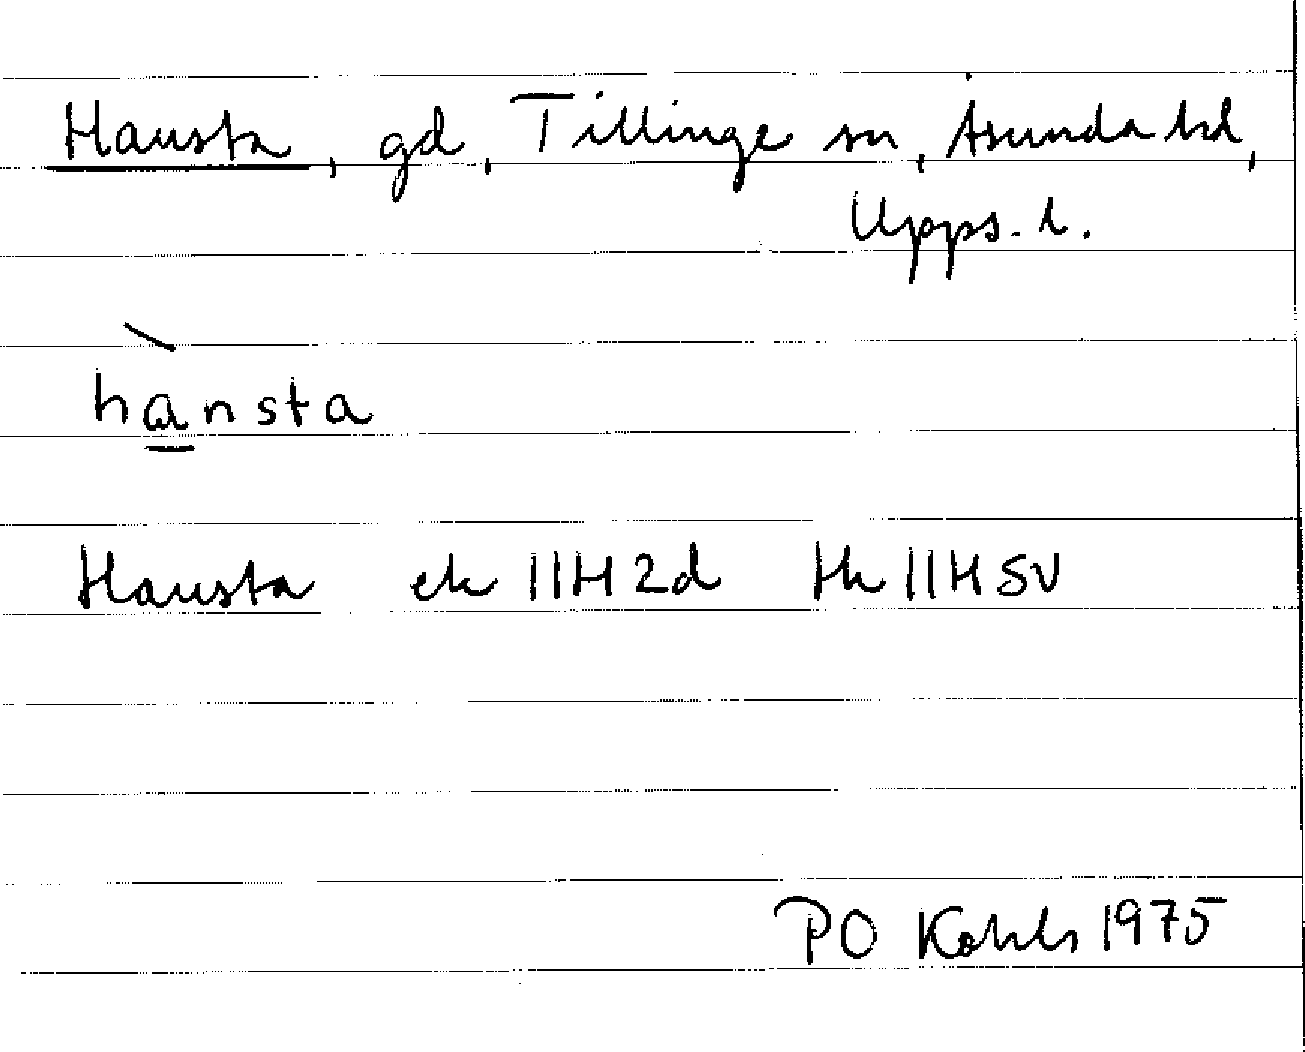 Hansta, gd, Tillinge sn, Åsunda hd,
Upps. l.
hansta
Hansta ek 11H2d Hk 11H SV
PO 1975